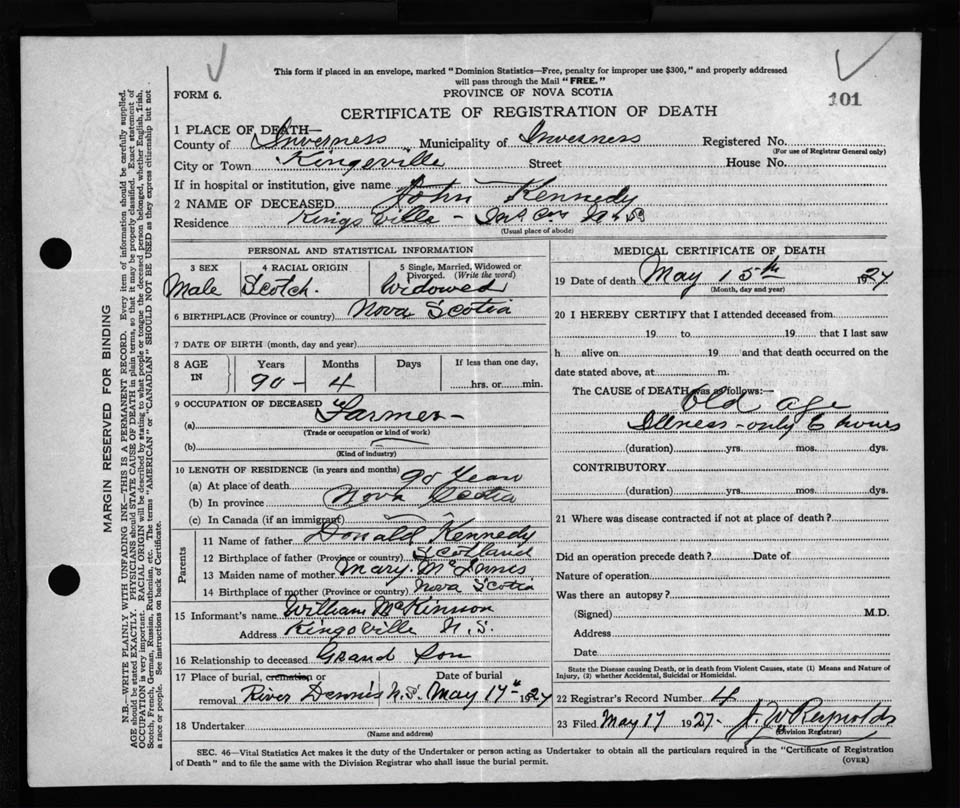 This form if placed in an envelope, marked "Dominion Statistics—Free, penalty for improper use $300," and properly addressed
will pass through the Mail "FREE."
FORM 6.
PROVINCE OF NOVA SCOTIA
101
CERTIFICATE OF REGISTRATION OF DEATH
1 PLACE OF DEATH—
County of Inverness Municipality of Inverness Registered No.
(For use of Registrar General only)
City or Town Kingsville Street House No.
If in hospital or institution, give name
2 NAME OF DECEASED John Kennedy
Residence Kingsville - Inv. Co. N.S.
(Usual place of abode)
PERSONAL AND STATISTICAL INFORMATION
3 SEX 4 RACIAL ORIGIN 5 Single, Married, Widowed or
Divorced. (Write the word)
Male Scotch. Widowed
6 BIRTHPLACE (Province or country) Nova Scotia
7 DATE OF BIRTH (month, day and year)
8 AGE IN Years Months Days If less than one day,
90 - 4 hrs. or min.
9 OCCUPATION OF DECEASED
(a) Farmer -
(Trade or occupation or kind of work)
(b)
(Kind of industry)
10 LENGTH OF RESIDENCE (in years and months)
(a) At place of death 90 Years
(b) In province Nova Scotia
(c) In Canada (if an immigrant)
Parents
11 Name of father Donald Kennedy
12 Birthplace of father (Province or country) Scotland
13 Maiden name of mother Mary McInnis
14 Birthplace of mother (Province or country) Nova Scotia
15 Informant's name William McKinnon
Address Kingsville N.S.
16 Relationship to deceased Grand Son
17 Place of burial, cremation or Date of burial
removal River Dennis N.S. May 17th 1927
18 Undertaker
(Name and address)
MEDICAL CERTIFICATE OF DEATH
19 Date of death May 15th 1927
(Month, day and year)
20 I HEREBY CERTIFY that I attended deceased from
19 to 19 that I last saw
h alive on 19 and that death occurred on the
date stated above, at m.
The CAUSE of DEATH was as follows:
Old age
Illness - only 6 hours
(duration) yrs. mos. dys.
CONTRIBUTORY
(duration) yrs. mos. dys.
21 Where was disease contracted if not at place of death?
Did an operation precede death? Date of
Nature of operation
Was there an autopsy?
(Signed) M.D.
Address
Date
State the Disease causing Death, or in death from Violent Causes, state (1) Means and Nature of
Injury, (2) whether Accidental, Suicidal or Homicidal.
22 Registrar's Record Number 4
23 Filed May 17 1927 - J. W. Reynolds
(Division Registrar)
SEC. 46—Vital Statistics Act makes it the duty of the Undertaker or person acting as Undertaker to obtain all the particulars required in the "Certificate of Registration
of Death" and to file the same with the Division Registrar who shall issue the burial permit.
(OVER)
MARGIN RESERVED FOR BINDING
N.B.—WRITE PLAINLY WITH UNFADING INK—THIS IS A PERMANENT RECORD. Every item of information should be carefully supplied.
AGE should be stated EXACTLY. PHYSICIANS should STATE CAUSE OF DEATH in plain terms, so that it may be properly classified. Exact statement of
OCCUPATION is very important. RACIAL ORIGIN will be described by stating to what people or tongue the deceased person belonged, whether English, Irish,
Scotch, French, German, Russian, Ruthenian, etc. The terms "AMERICAN" or "CANADIAN" SHOULD NOT BE USED as they express citizenship but not
a race or people. See instructions on back of Certificate.